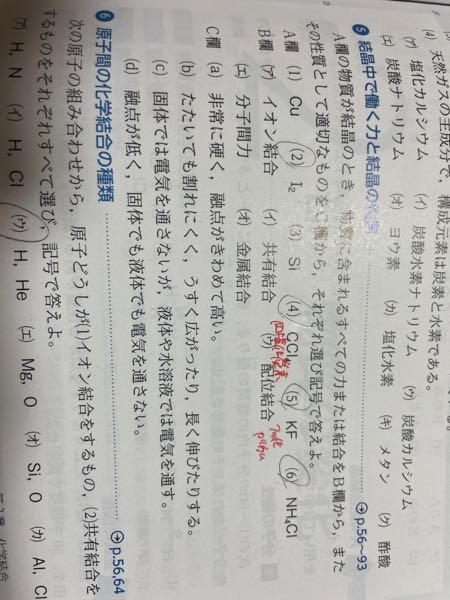 (4) 天然ガスの主成分で，構成元素は炭素と水素である。
(ア) 塩化カルシウム (イ) 炭酸水素ナトリウム (ウ) 炭酸カルシウム
(エ) 炭酸ナトリウム (オ) ヨウ素 (カ) 塩化水素 (キ) メタン (ク) 酢酸
5 結晶中で働く力と結晶の p.56~93
A欄の物質が結晶のとき，物質に含まれるすべての力または結合をB欄から，また
その性質として適切なものをC欄から，それぞれ選び記号で答えよ。
A欄 (1) Cu (2) I₂ (3) Si (4) CCl₄ (5) KF (6) NH₄Cl
四塩化炭素
B欄 (ア) イオン結合 (イ) 共有結合 (ウ) 配位結合
(エ) 分子間力 (オ) 金属結合
C欄 (a) 非常に硬く，融点がきわめて高い。
(b) たたいても割れにくく，うすく広がったり，長く伸びたりする。
(c) 固体では電気を通さないが，液体や水溶液では電気を通す。
(d) 融点が低く，固体でも液体でも電気を通さない。
6 原子間の化学結合の種類 p.56,64
次の原子の組み合わせから，原子どうしが(1)イオン結合をするもの，(2)共有結合を
するものをそれぞれすべて選び，記号で答えよ。
(ア) H, N (イ) H, Cl (ウ) H, He (エ) Mg, O (オ) Si, O (カ) Al, Cl
化学結合